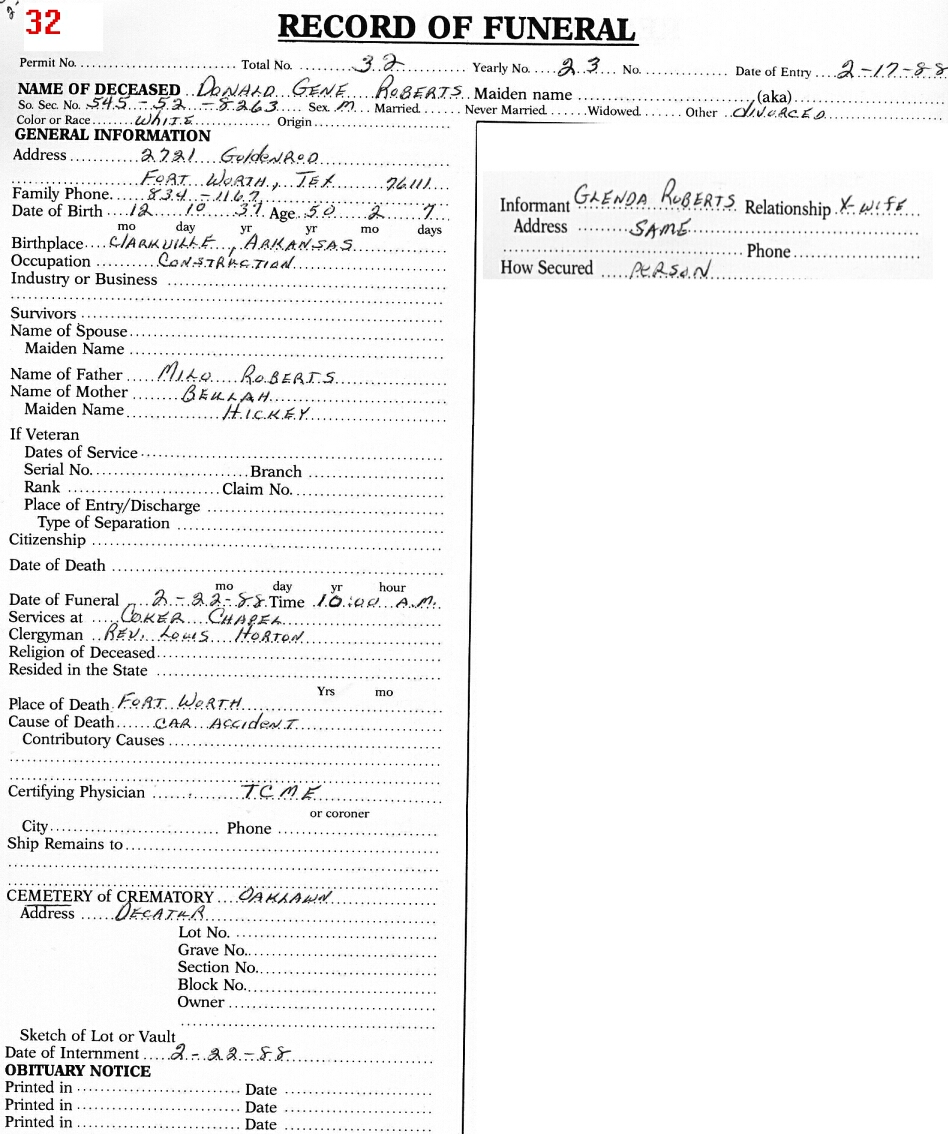 32
RECORD OF FUNERAL
Permit No. Total No. 32 Yearly No. 23 No. Date of Entry 2-17-88
NAME OF DECEASED DONALD GENE ROBERTS Maiden name (aka)
So. Sec. No. 545-52-8263 Sex M Married Never Married Widowed Other DIVORCED
Color or Race WHITE Origin
GENERAL INFORMATION
Address 2721 GOLDENROD
FORT WORTH, TEX 76111
Family Phone 834-1167
Date of Birth 12 10 37 Age 50 2 7
mo day yr yr mo days
Birthplace CLARKVILLE, ARKANSAS
Occupation CONSTRUCTION
Industry or Business
Survivors
Name of Spouse
Maiden Name
Name of Father MILO ROBERTS
Name of Mother BEULAH
Maiden Name HICKEY
If Veteran
Dates of Service
Serial No. Branch
Rank Claim No.
Place of Entry/Discharge
Type of Separation
Citizenship
Date of Death
mo day yr hour
Date of Funeral 2-22-88 Time 10:00 A.M.
Services at COKER CHAPEL
Clergyman REV. LOUIS HORTON
Religion of Deceased
Resided in the State
Yrs mo
Place of Death FORT WORTH
Cause of Death CAR ACCIDENT
Contributory Causes
Certifying Physician TCME
or coroner
City Phone
Ship Remains to
CEMETERY of CREMATORY OAKLAWN
Address DECATUR
Lot No.
Grave No.
Section No.
Block No.
Owner
Sketch of Lot or Vault
Date of Internment 2-22-88
OBITUARY NOTICE
Printed in Date
Printed in Date
Printed in Date
Informant GLENDA ROBERTS Relationship X-WIFE
Address SAME
Phone
How Secured PERSON